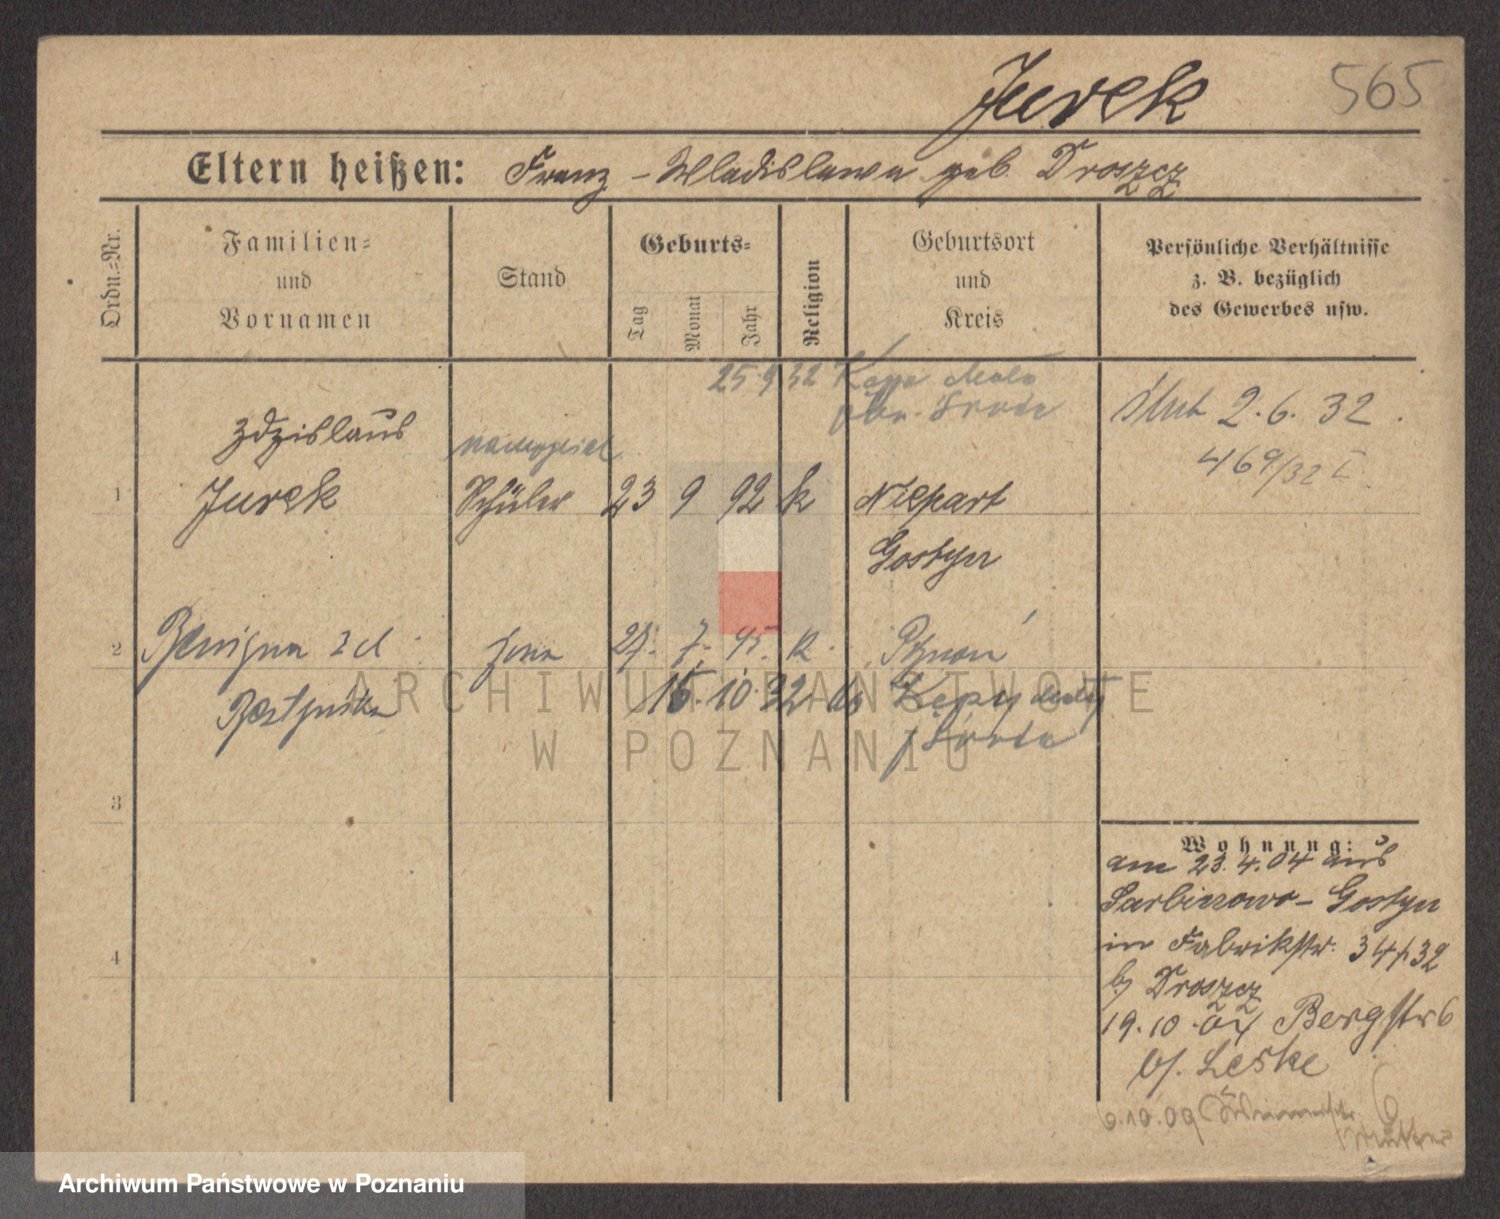 Jurek
565
Eltern heißen: Franz - Wladislawa geb. Droszcz
Ordn.=Nr.
Familien=
und
Vornamen
Stand
Geburts=
Tag
Monat
Jahr
Religion
Geburtsort
und
Kreis
Persönliche Verhältnisse
z. B. bezüglich
des Gewerbes usw.
25 9 32
2.6. 32.
469/32 I
Zdzislaus
1 Jurek Schüler 23 9 92 k Niepart
Gostyn
2 Benigna żona 7. 95. k.
15. 10 32
3
4
Wohnung:
am 23.4.04 aus
Sarbinowo - Gostyn
in Fabrikstr. 34/32
bj Droszcz
19.10.04 Bergstr 6
bj. Leske
6.10.09
Mutter
ARCHIWUM PAŃSTWOWE
W POZNANIU
Archiwum Państwowe w Poznaniu